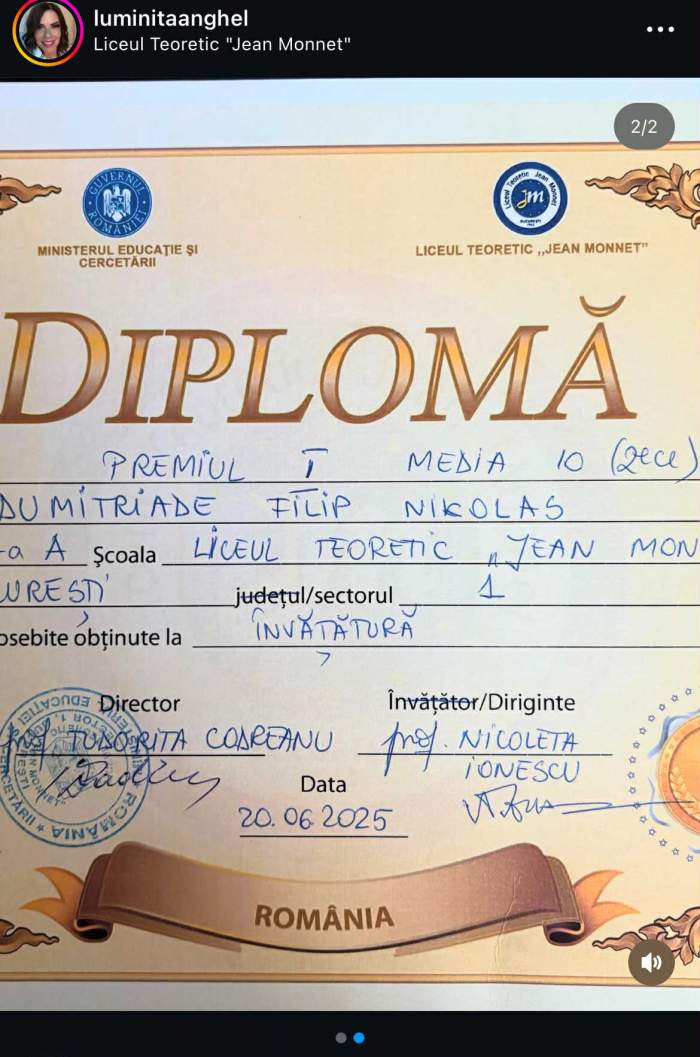 luminitaanghel
Liceul Teoretic "Jean Monnet"
2/2
GUVERNUL ROMÂNIEI
Liceul Teoretic Jean Monnet
jm
MINISTERUL EDUCAȚIE ȘI
CERCETĂRII
LICEUL TEORETIC „JEAN MONNET”
DIPLOMĂ
PREMIUL I MEDIA 10 (zece)
DUMITRIADE FILIP NIKOLAS
-a A Școala LICEUL TEORETIC „JEAN MON
URESTI județul/sectorul 1
osebite obținute la ÎNVĂȚĂTURĂ
Director Învățător/Diriginte
prof. TUDORIȚA CODREANU prof. NICOLETA
IONESCU
Data
20.06.2025
ROMÂNIA